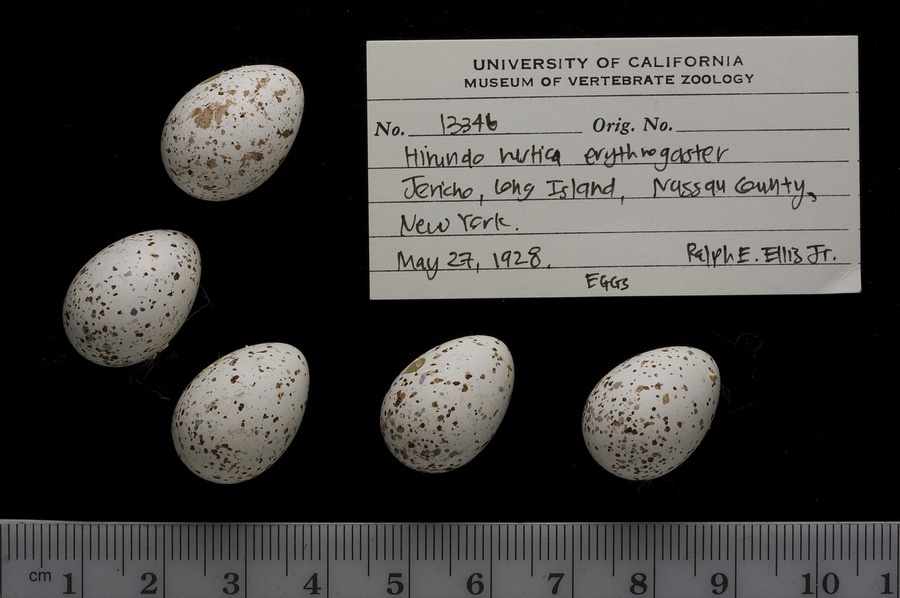 UNIVERSITY OF CALIFORNIA
MUSEUM OF VERTEBRATE ZOOLOGY
No. 13346 Orig. No.
Hirundo rustica erythrogaster
Jericho, Long Island, Nassau County,
New York.
May 27, 1928. Ralph E. Ellis Jr.
EGGS
cm 1 2 3 4 5 6 7 8 9 10 1